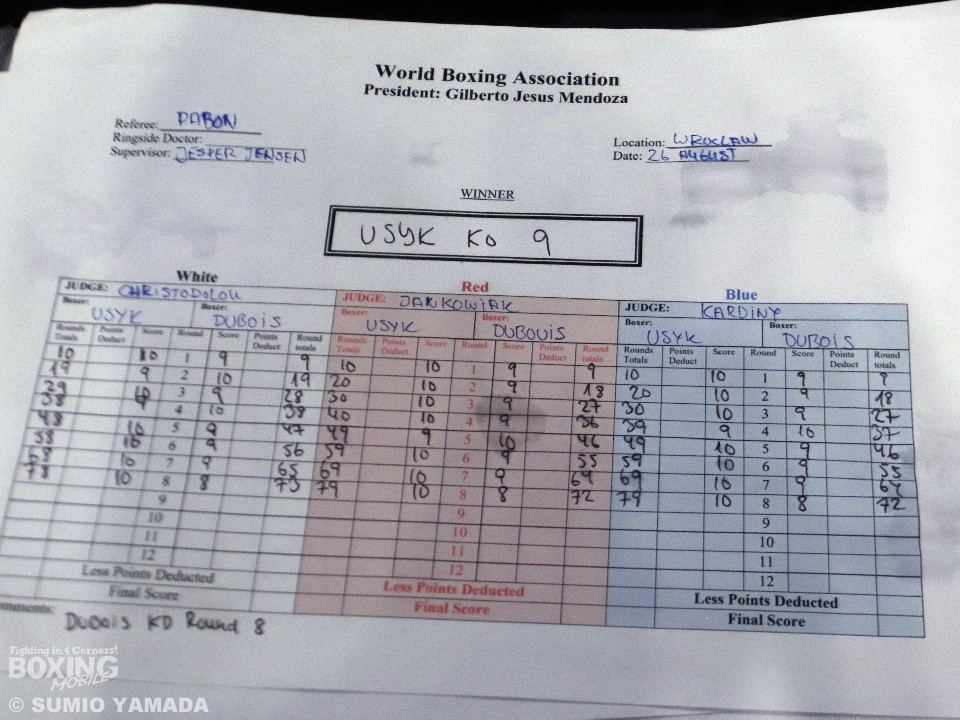 World Boxing Association
President: Gilberto Jesus Mendoza
Referee: PABON
Ringside Doctor:
Supervisor: JESPER JENSEN
Location: WROCLAW
Date: 26 AUGUST
WINNER
USYK KO 9
White Red Blue
JUDGE: CHRISTODOLOU JUDGE: JANKOWIAK JUDGE: KARDINY
Boxer: USYK Boxer: DUBOIS Boxer: USYK Boxer: DUBOUIS Boxer: USYK Boxer: DUBOIS
Rounds Totals Points Deduct Score Round Score Points Deduct Round totals Rounds Totals Points Deduct Score Round Score Points Deduct Round totals Rounds Totals Points Deduct Score Round Score Points Deduct Round totals
10 10 1 9 9 10 10 1 9 9 10 10 1 9 9
19 9 2 10 19 20 10 2 9 18 20 10 2 9 18
29 10 3 9 28 30 10 3 9 27 30 10 3 9 27
38 9 4 10 38 40 10 4 9 36 39 9 4 10 37
48 10 5 9 47 49 9 5 10 46 49 10 5 9 46
58 10 6 9 56 59 10 6 9 55 59 10 6 9 55
68 10 7 9 65 69 10 7 9 64 69 10 7 9 64
78 10 8 8 73 79 10 8 8 72 79 10 8 8 72
9 9 9
10 10 10
11 11 11
12 12 12
Less Points Deducted Less Points Deducted Less Points Deducted
Final Score Final Score Final Score
DUBOIS KD Round 8
Fighting in 4 Corners!
BOXING
MOBILE
© SUMIO YAMADA